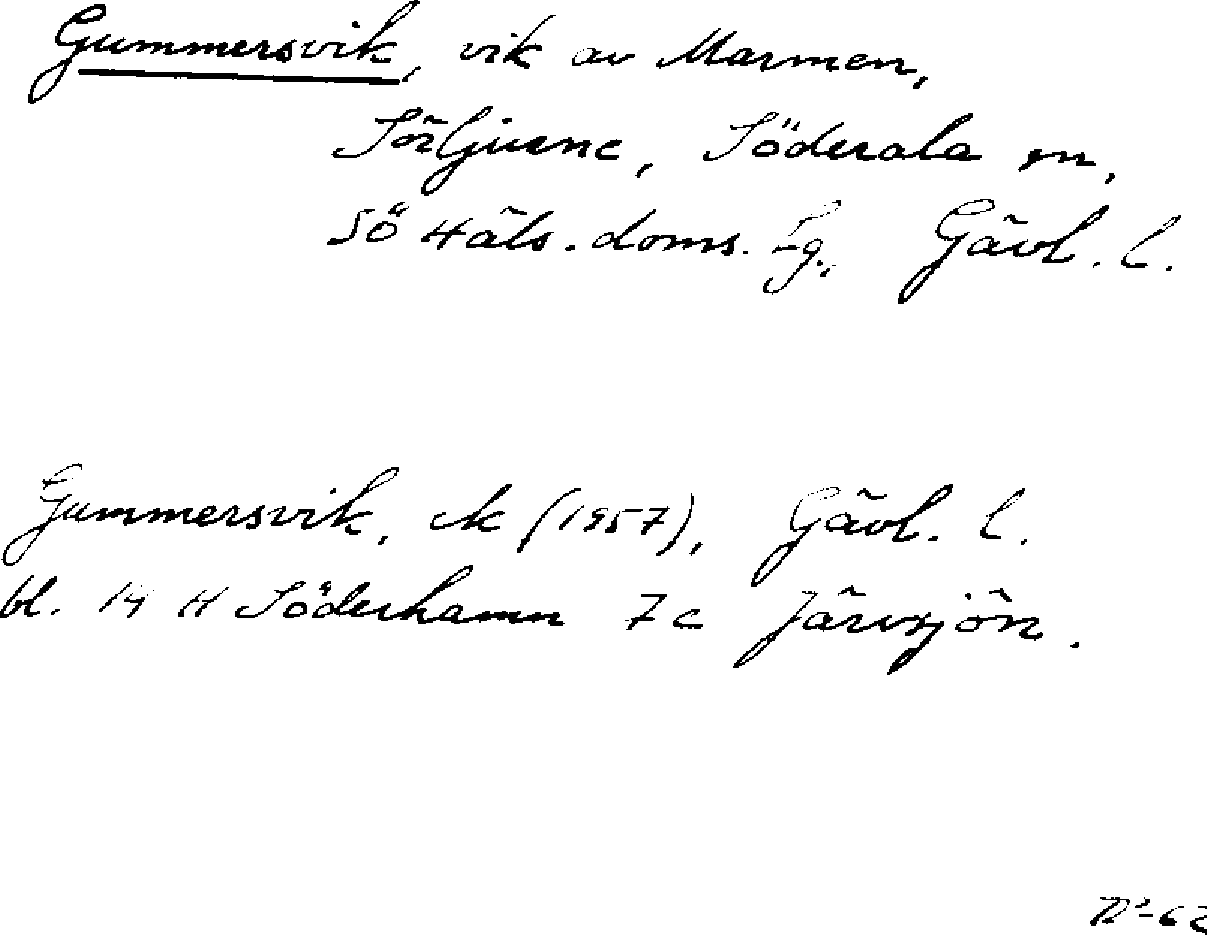 Gummersvik, vik av Marmen,
Sörljusne, Söderala sn,
Sö Häls. doms. Lg., Gävl. l.
Gummersvik, ek (1957), Gävl. l.
bl. 14 H Söderhamn 7c Järvsjön.